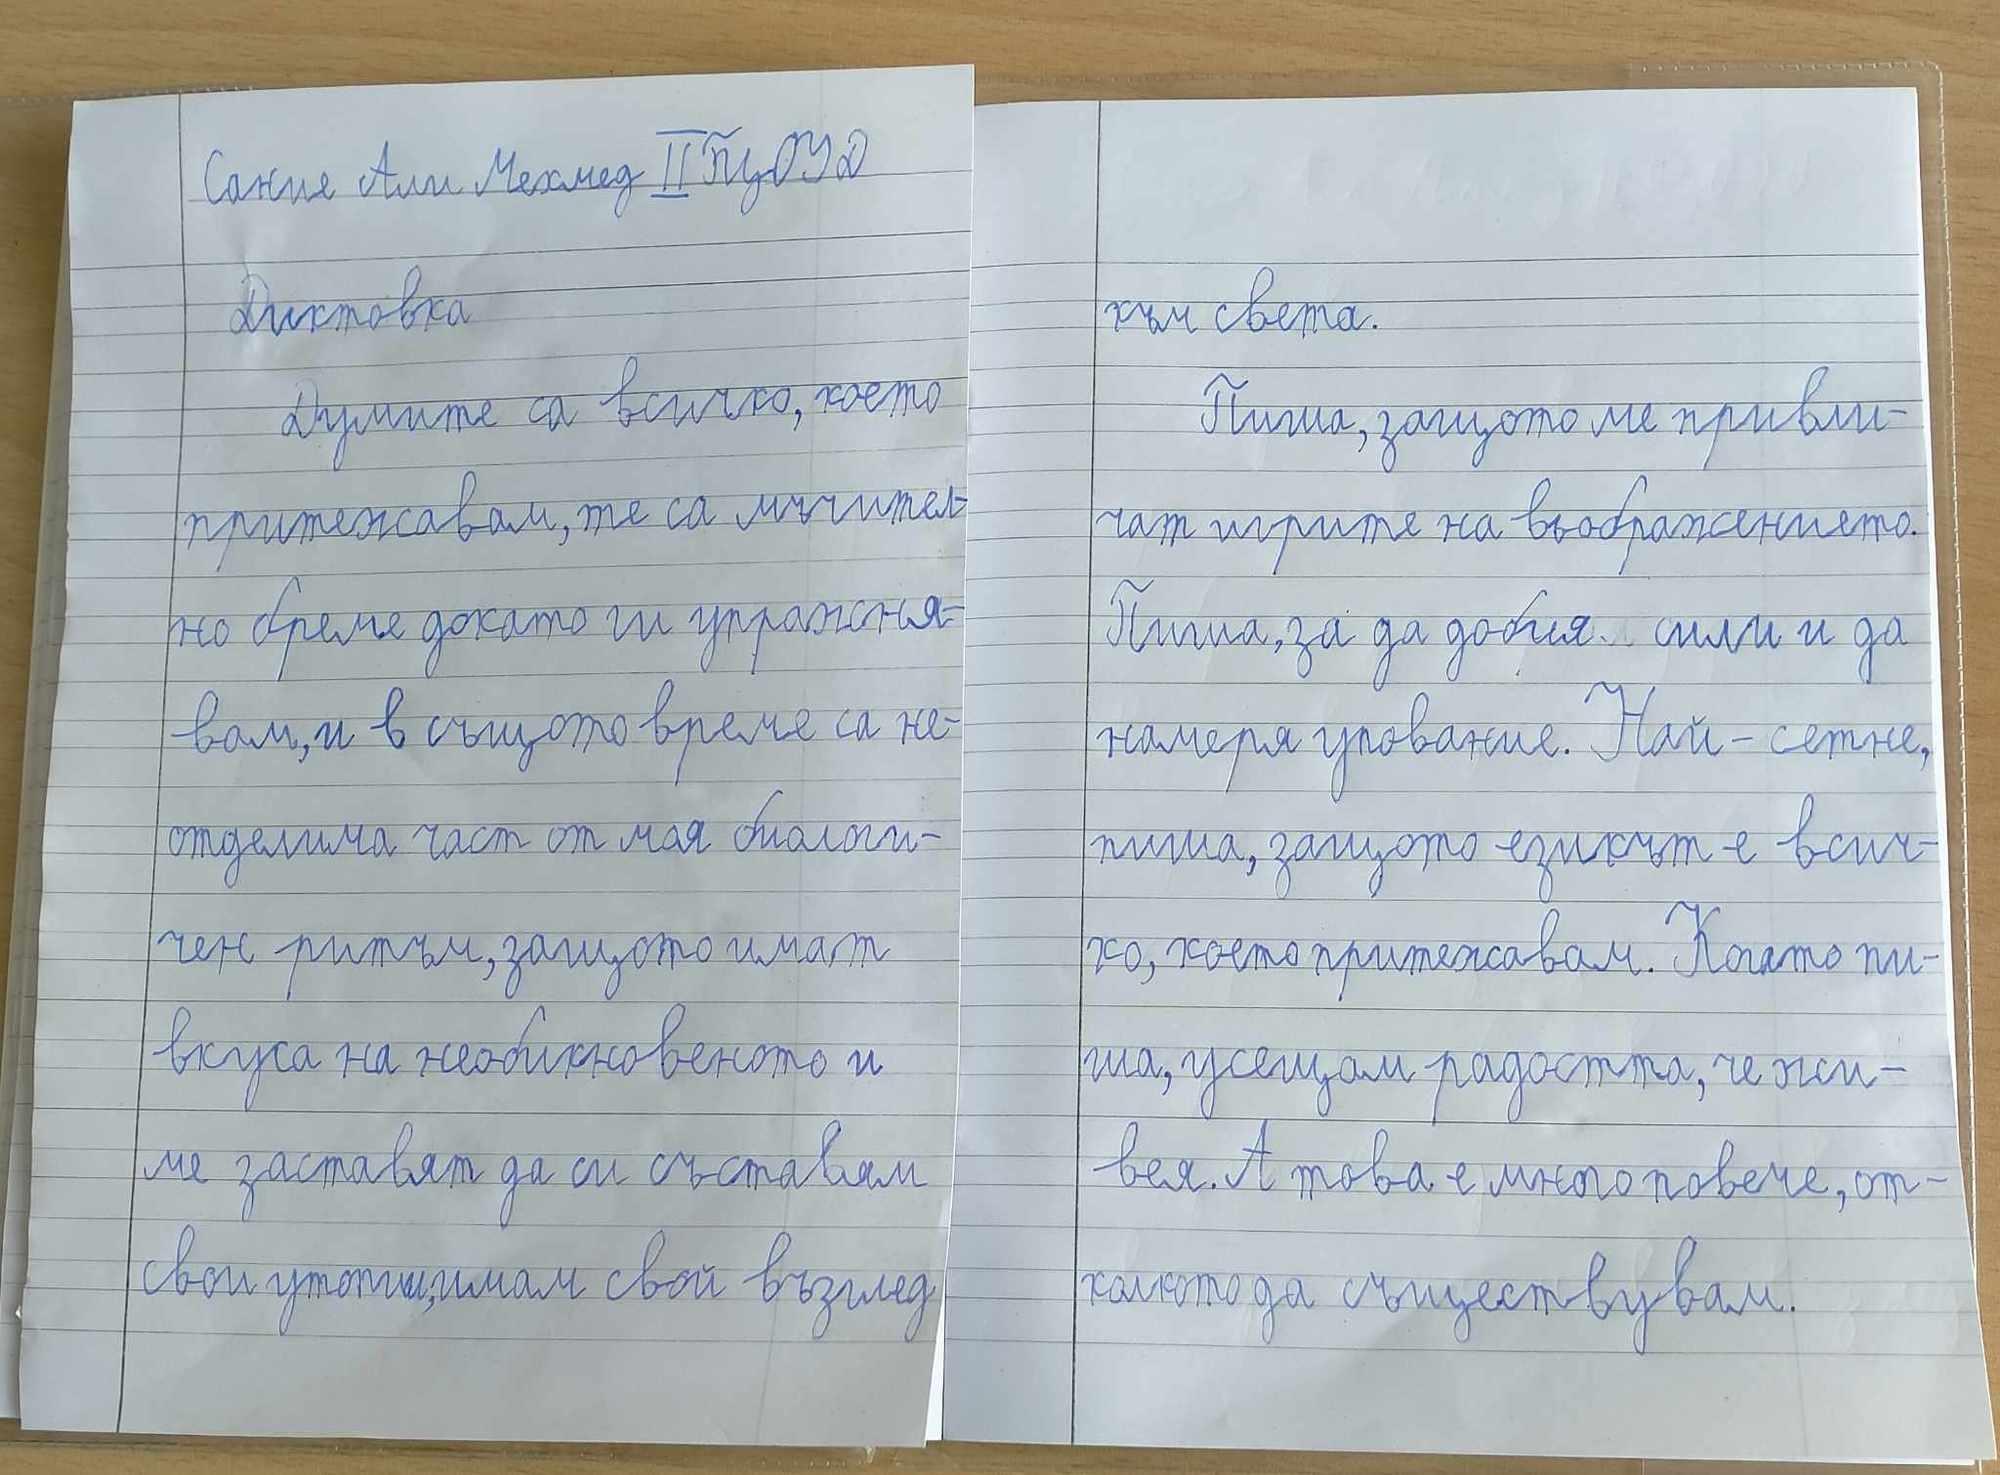 Сание Али Мехмед II ПЦОУД
Диктовка
Думите са всичко, което
притежавам, те са мъчител-
но бреме докато ги упражня-
вам, и в същото време са не-
отделима част от мая биологи-
чен ритъм, защото имат
вкуса на необикновеното и
ме заставят да си съставям
свои утопии, имам свой възглед
към света.
Пиша, защото ме привли-
чат игрите на въображението.
Пиша, за да добия сили и да
намеря упование. Най-сетне,
пиша, защото езикът е всич-
ко, което притежавам. Когато пи-
ша, усещам радостта, че жи-
вея. А това е много повече, от-
колкото да съществувам.